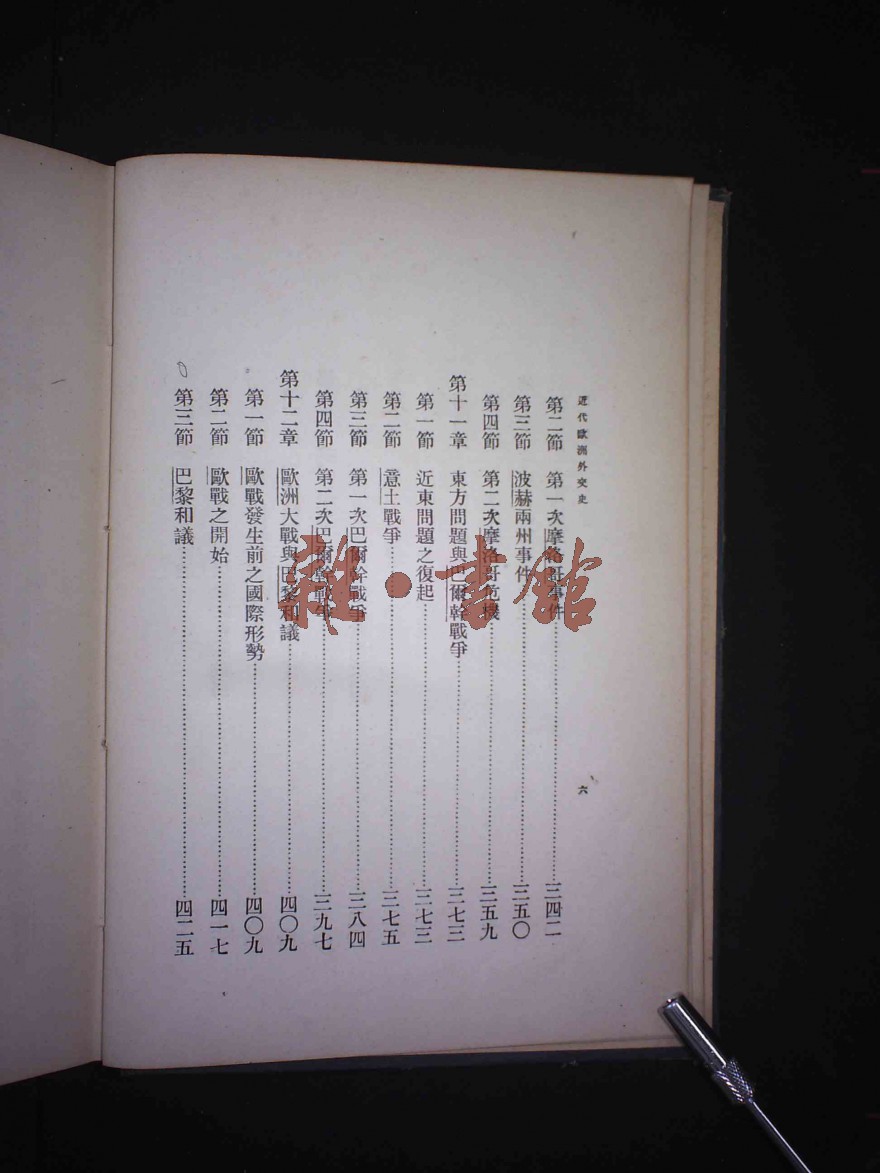 近代歐洲外交史
六
第二節 第一次摩洛哥事件 三四二
第三節 波赫兩州事件 三五〇
第四節 第二次摩洛哥危機 三五九
第十一章 東方問題與巴爾幹戰爭 三七三
第一節 近東問題之復起 三七三
第二節 意土戰爭 三七五
第三節 第一次巴爾幹戰爭 三八四
第四節 第二次巴爾幹戰爭 三九七
第十二章 歐洲大戰與巴黎和議 四〇九
第一節 歐戰發生前之國際形勢 四〇九
第二節 歐戰之開始 四一七
第三節 巴黎和議 四二五
雜·書館